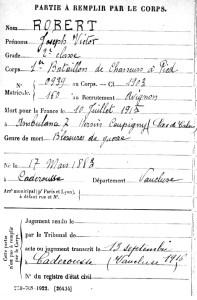 PARTIE À REMPLIR PAR LE CORPS.
Nom ROBERT
Prénoms Joseph Victor
Grade 2e classe
Corps Bataillon de Chasseurs à Pied
N° 2939 au Corps. — Cl. 1903
Matricule. 163 au Recrutement Avignon
Mort pour la France le 10 Juillet 1915
à Ambulance 2 Versin Coupigny (Pas de Calais)
Genre de mort Blessures de guerre
Né le 17 Mars 1883
à Caderousse Département Vaucluse
Arrt municipal (pr Paris et Lyon),
à défaut rue et N°.
Cette partie n'est pas à remplir par le Corps.
Jugement rendu le
par le Tribunal de
acte ou jugement transcrit le 13 septembre 1916
à Caderousse (Vaucluse)
N° du registre d'état civil
1922. [26434]